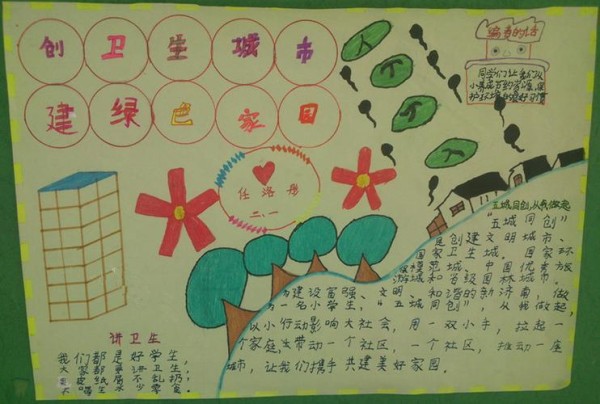 创卫生城市
建绿色家园
编者的话
同学们让我们从
小养成
护环境的良好习惯
任洛彤
二、一
五城同创,从我做起
"五城同创"
是创建文明城市、
国家卫生城、国家环
保模范城、中国优秀旅
游城和省级园林城市。
为建设富强、文明、和谐的新济南,做
为一名小学生,"五城同创",从我做起,
以小行动影响大社会,用一双小手,拉起一
个家庭,带动一个社区,一个社区,推动一座
城市,让我们携手共建美好家园。
讲卫生
我们都是好学生,
大家都爱讲卫生,